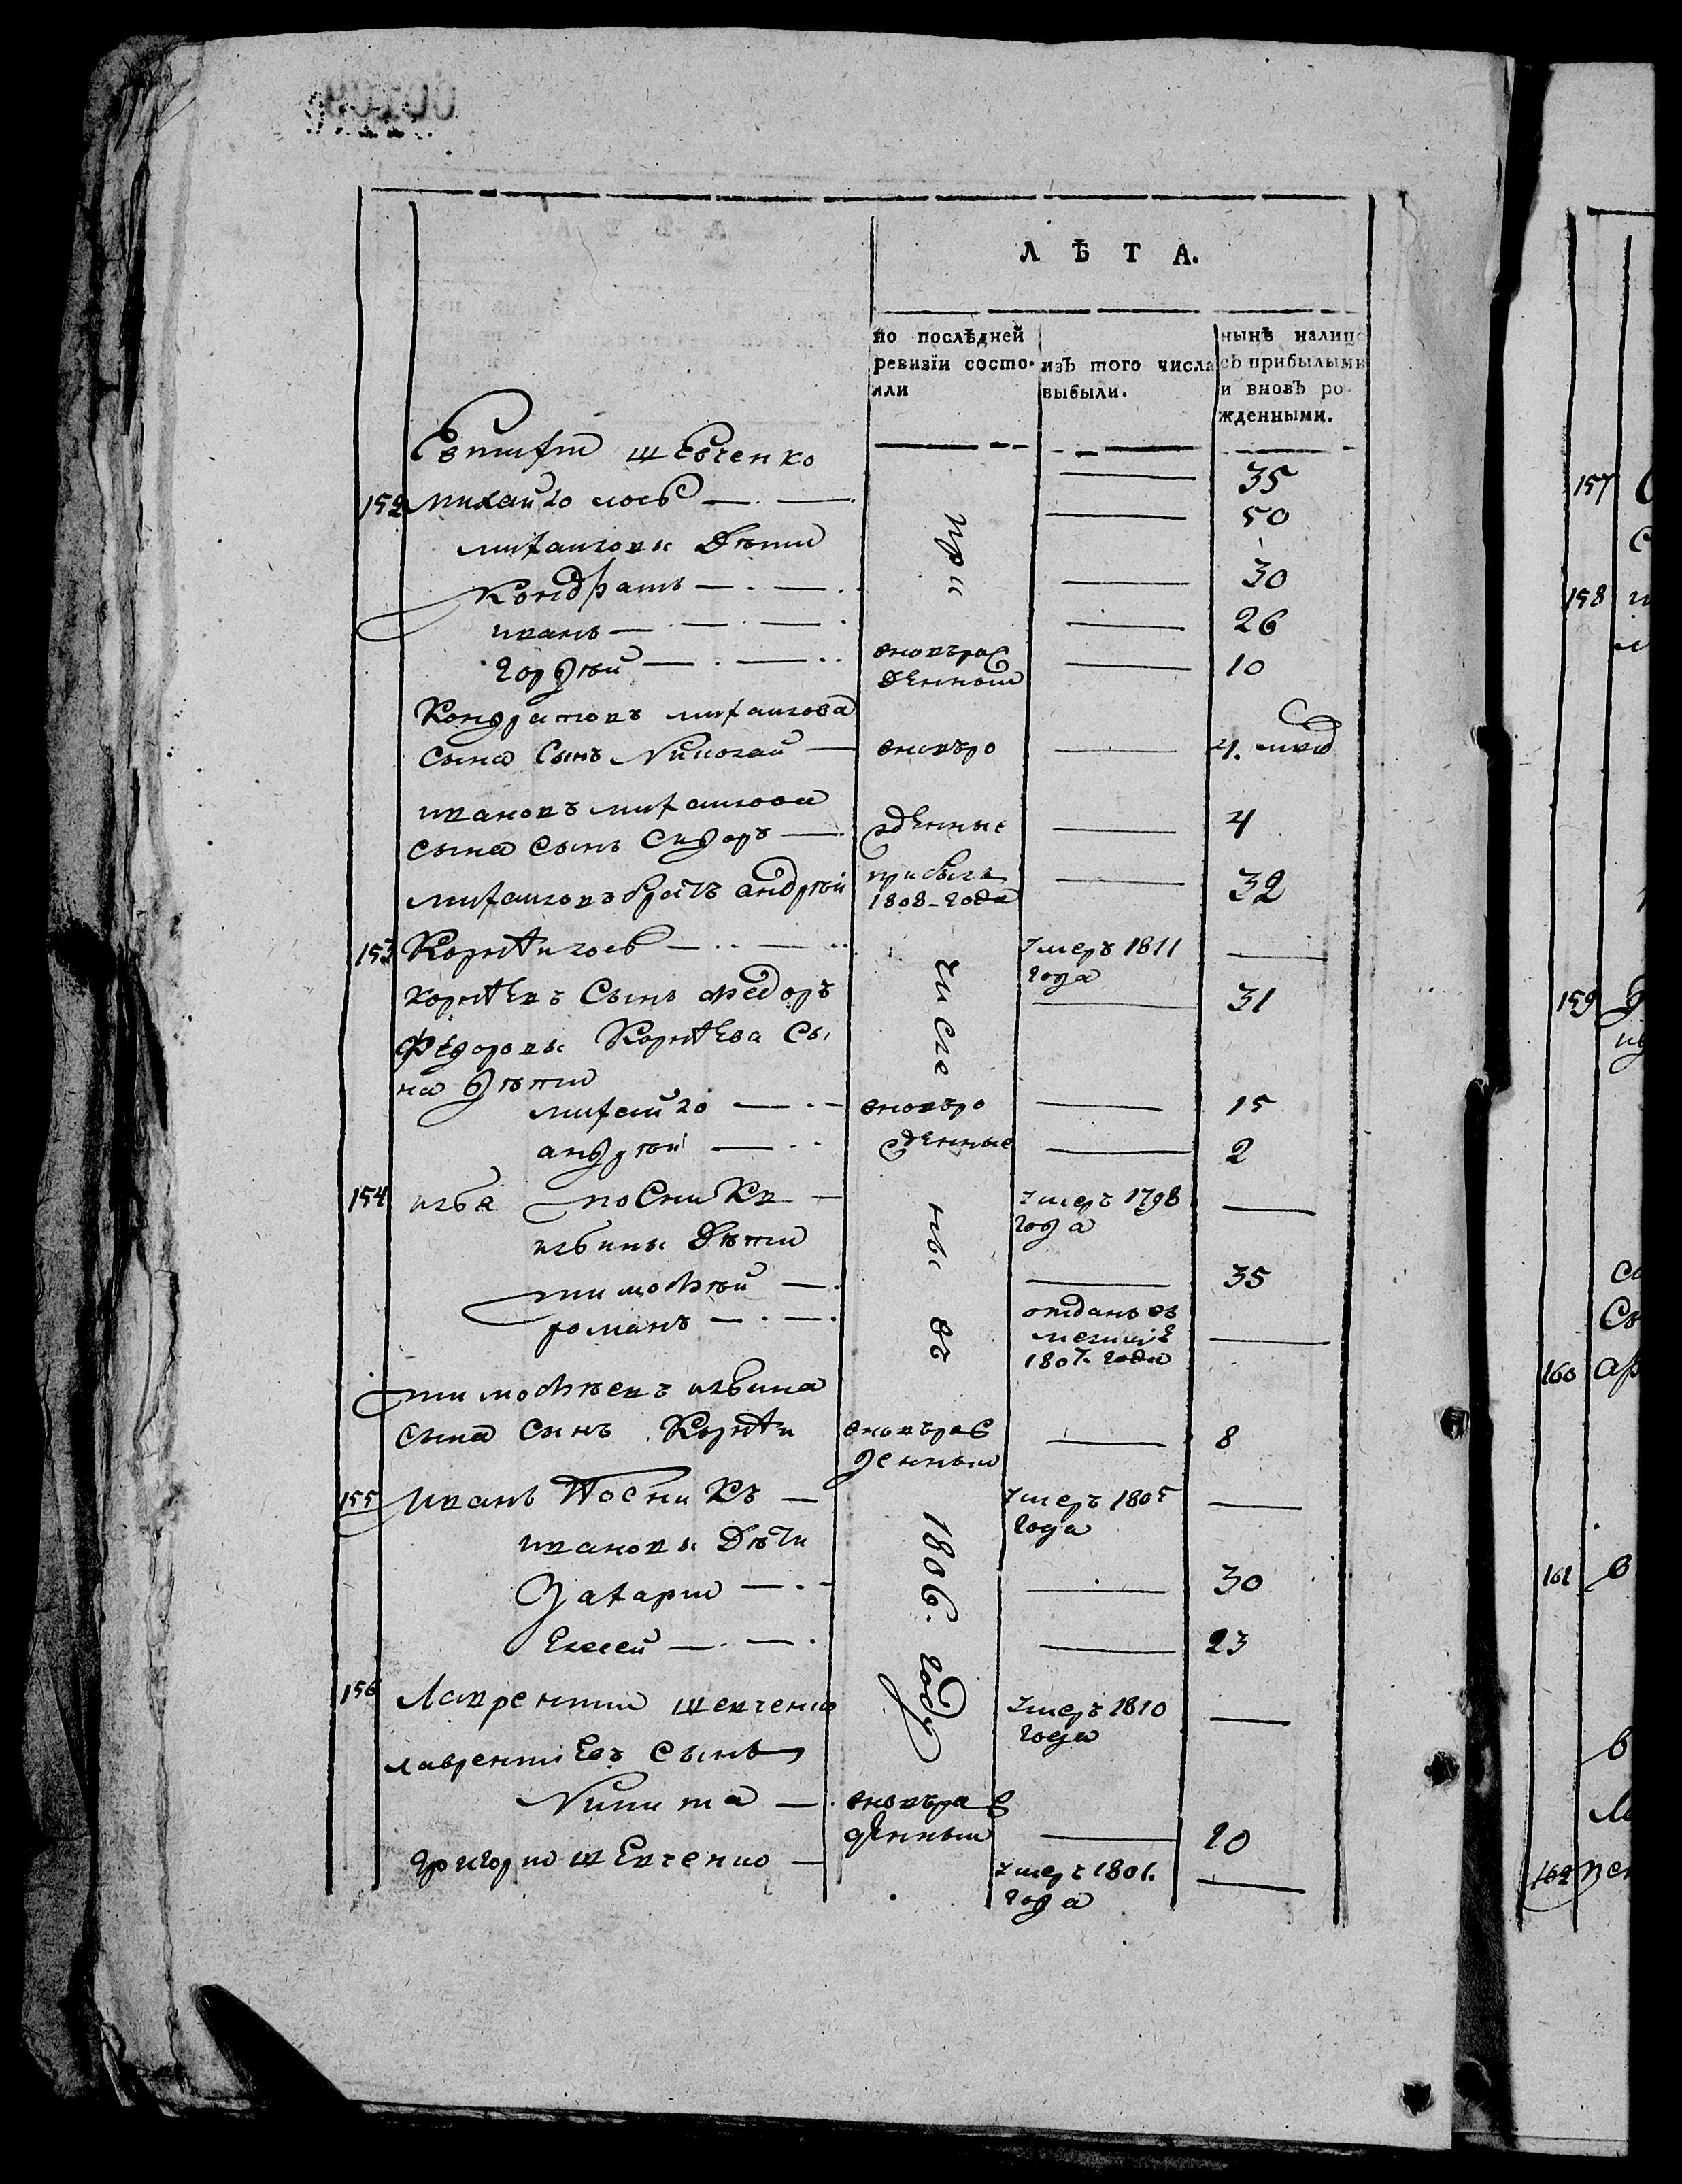 ЛѢТА.
по послѣдней
ревизіи состо-
яли
изъ того числа
выбыли.
нынѣ налицо
съ прибылыми
и вновь ро-
жденными.
Евтифій шевченко — 35
152 михайло лось — 50
михаиловы дѣти
Кондратъ — 30
иванъ — 26
гордѣй — вновьрож
денный — 10
Кондратовъ михаилова
сына сынъ Николай — вновьро — 4. мцд
ивановъ михаилова
сына сынъ сидоръ — жденные — 4
михаиловъ братъ андрѣй прибылъ
1808-года — 32
153 Корнѣи лось — умеръ 1811
года —
корнѣевъ сынъ федоръ — 31
федоровы Корнѣева сы
на дѣти
михайло — вновьро — 15
андрѣй — жденные — 2
154 илья посникъ — умеръ 1798
года —
ильины дѣти
тимофѣй — 35
романъ — отданъ въ
милиціе
1807 года —
тимофѣевъ ильина
сына сынъ Корнѣи вновьрож
денный — 8
155 Иванъ Посникъ — умеръ 1805
года —
ивановы дѣти
Захарій — 30
Елисей — 23
156 Лаврентий шевченко умеръ 1810
года —
лаврентіевъ сынъ
Никита — вновьрож
денный — 10
григорий шевченко — умеръ 1801.
года —
при
числе
ны
въ
1806.
году
157
158
159
160
161
162